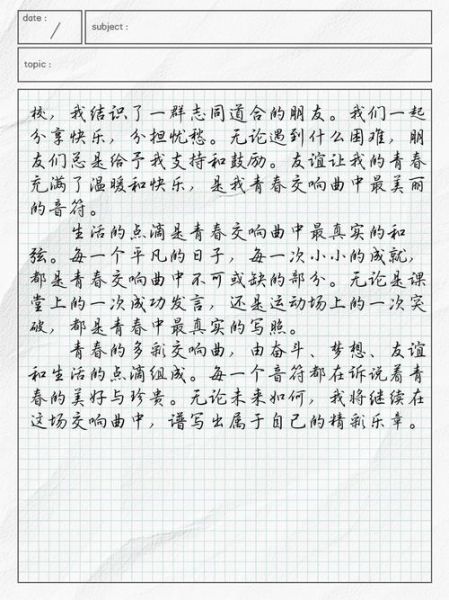 date :
/
subject :
topic :
校，我结识了一群志同道合的朋友。我们一起
分享快乐，分担忧愁。无论遇到什么困难，朋
友们总是给予我支持和鼓励。友谊让我的青春
充满了温暖和快乐，是我青春交响曲中最美丽
的音符。
生活的点滴是青春交响曲中最真实的和
弦。每一个平凡的日子，每一次小小的成就，
都是青春交响曲中不可或缺的部分。无论是课
堂上的一次成功发言，还是运动场上的一次突
破，都是青春中最真实的写照。
青春的多彩交响曲，由奋斗、梦想、友谊
和生活的点滴组成。每一个音符都在诉说着青
春的美好与珍贵。无论未来如何，我将继续在
这场交响曲中，谱写出属于自己的精彩乐章。